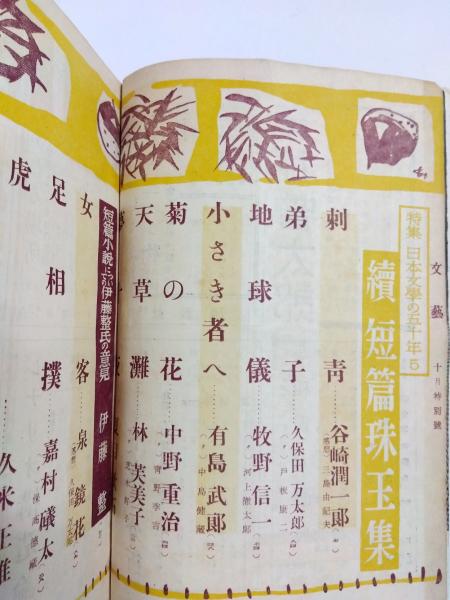 文藝
十月特別號
特集 日本文學の五十年5
續 短篇珠玉集
刺青……谷崎潤一郎
(感想)三島由紀夫
弟子……久保田万太郎
戸板康二
地球儀……牧野信一
河上徹太郎
小さき者へ……有島武郎
中島健蔵
菊の花……中野重治
青野季吉
天草灘……林芙美子
短篇小説についての伊藤整氏の意見 伊藤整
女客……泉鏡花
足相撲……嘉村礒太
虎
久米正雄